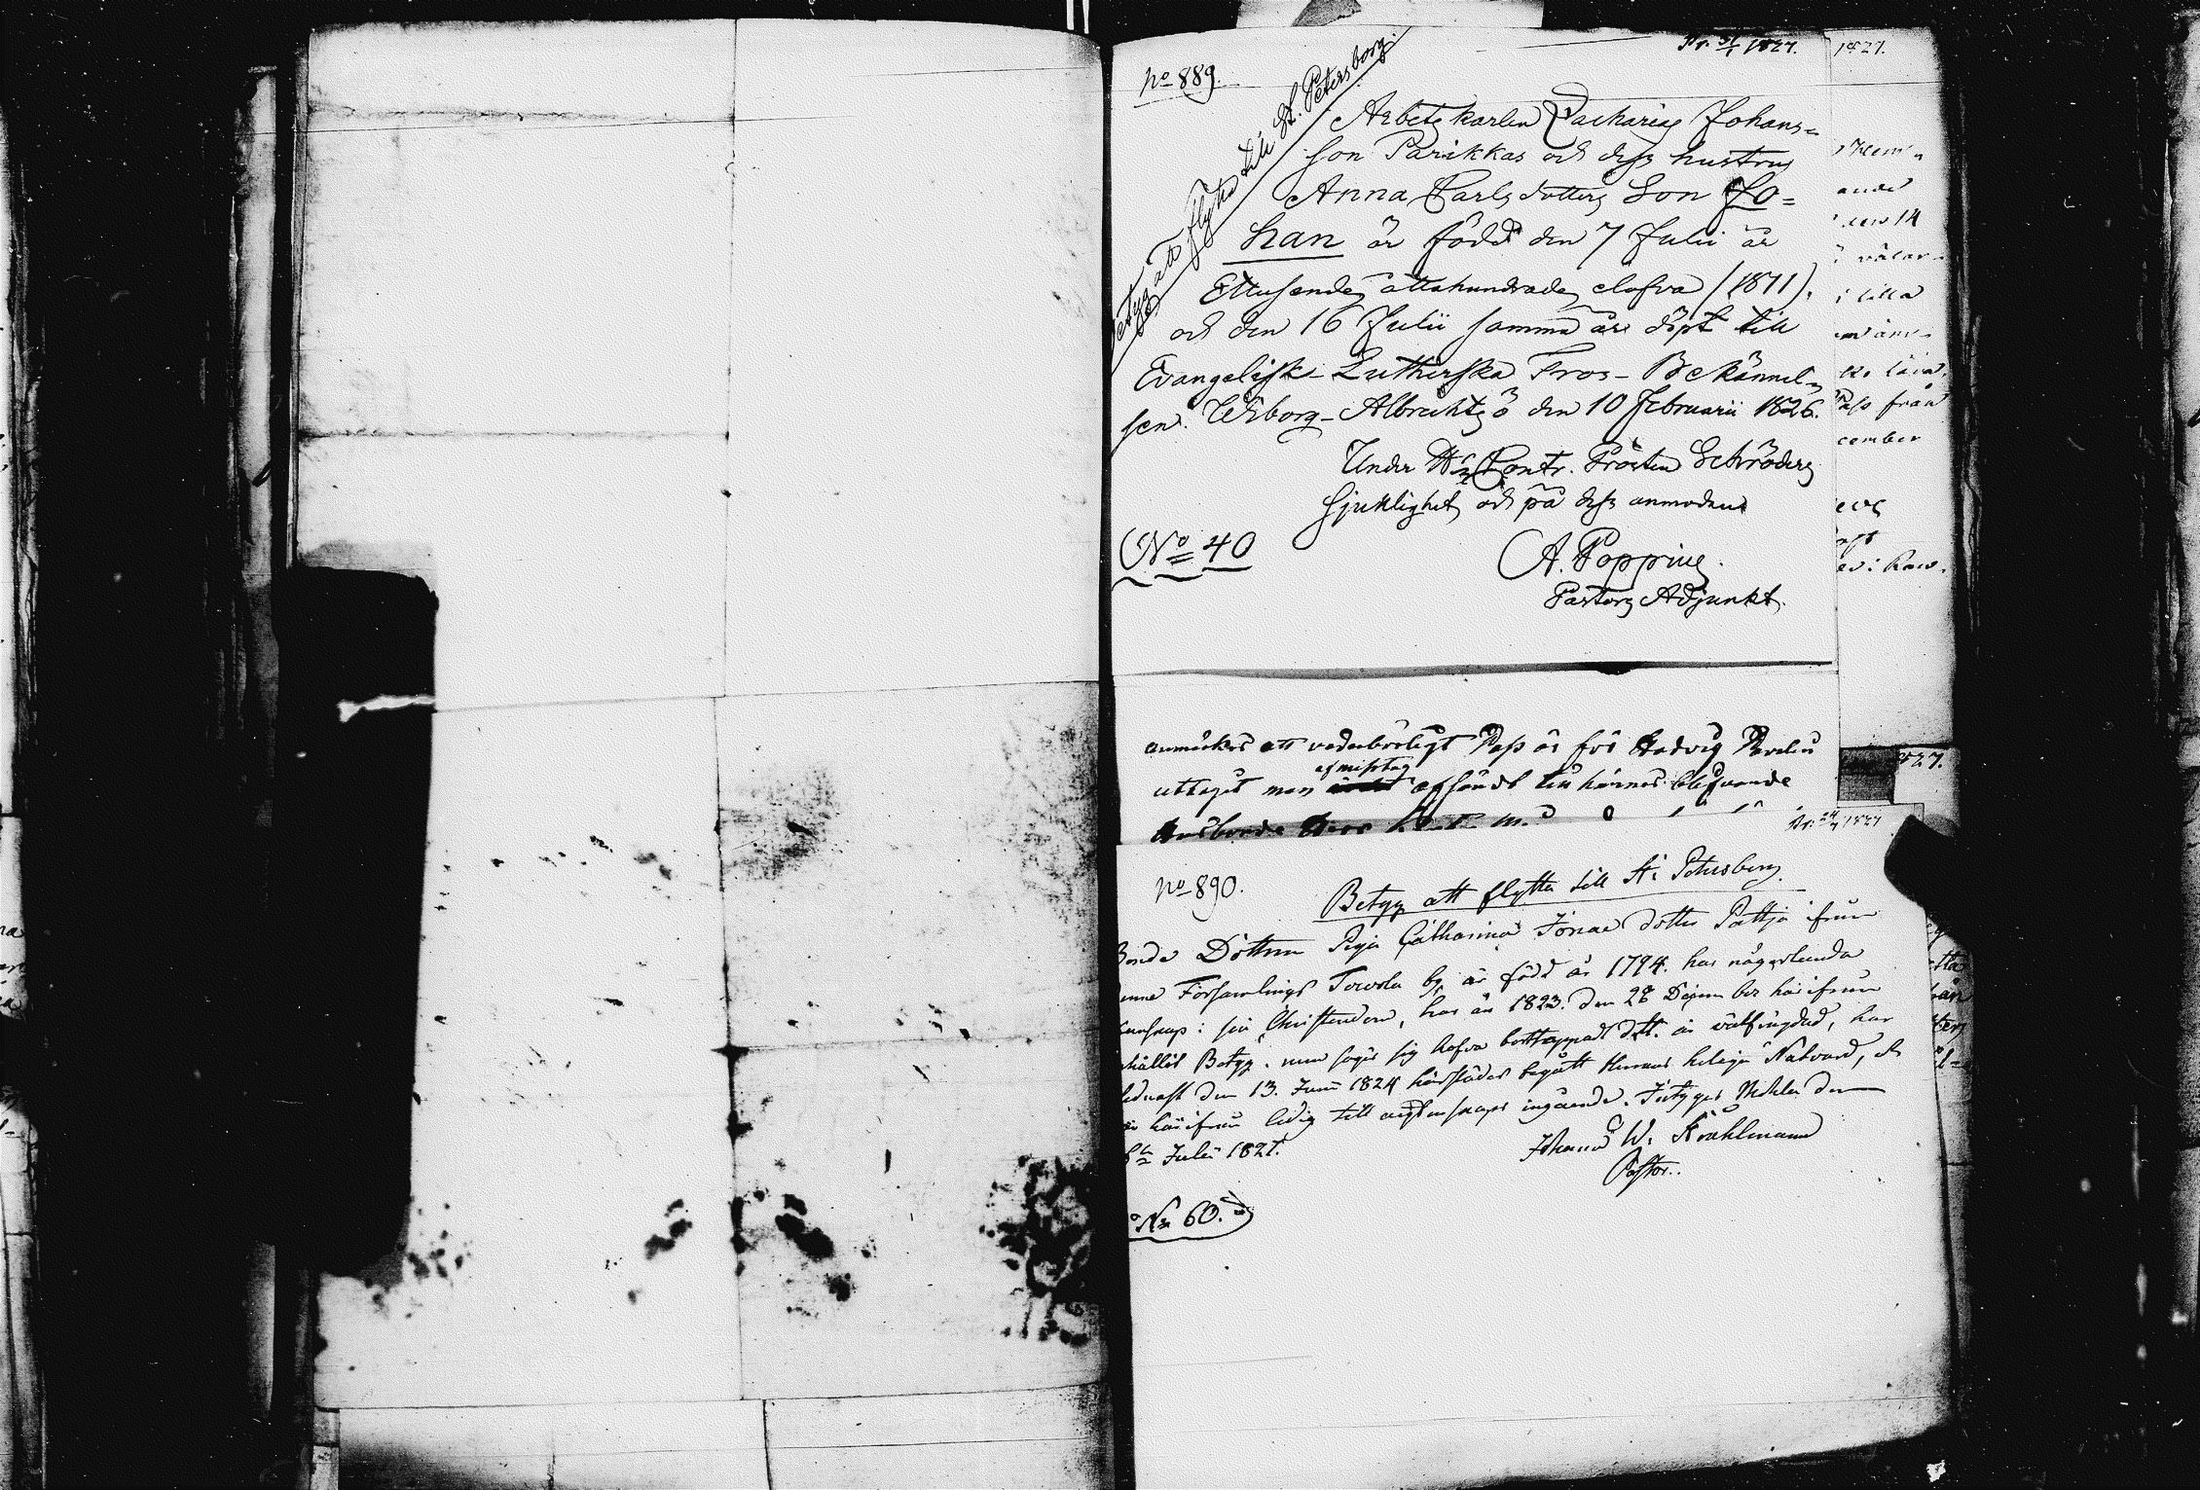 No 889.
Pr. 31/1 1827.
Betyg att flytta till St. Petersborg.
Arbetskarlen Zacharias Johans=
son Parikkas och dess hustrus
Anna Carlsdotters Son Jo=
han är född den 7 Julii år
Ettusende åttahundrade elofva (1811),
och den 16 Julii samma år döpt till
Evangelisk-Lutherska Tros-Bekännel-
sen. Wiborg-Albrechtsö den 10 Februarii 1826.
Under Hr Contr. Prosten Schröders
sjuklighet och på dess anmodan
A. Poppius.
Pastors Adjunkt.
No 40
anmärkes att vederbörligt Pass är för Hedvig
uttaget men af misstag afsändt till hännes blifvande
Pr. 24/7 1827
No 890.
Betyg att flytta till St. Petersburg.
Bonde Dottren Pigan Catharina Jonae dotter Pattja ifrån
denne Församlings by är född år 1794. har någorlunda
kunskap i sin Christendom, har år 1823. den 28 December härifrån
erhållit Betyg, men säger sig hafva borttappadt det. är välfrägdad, har
sednast den 13. Junii 1824 härstädes begått Herrans heliga Nattvard, och
är härifrån ledig till ägtenskaps ingående. Intygar Mohla den
Julii 1827.
Johann W. Kråhlmann
Pastor.
No 60.
1827.
den 14
i lilla
Pass från
cember
827.